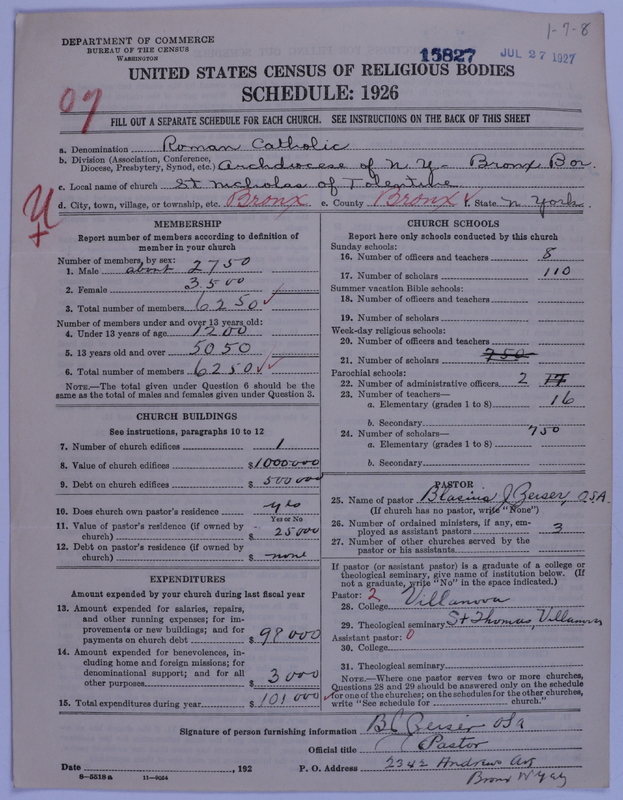 1-7-8
DEPARTMENT OF COMMERCE
BUREAU OF THE CENSUS
WASHINGTON
15827
JUL 27 1927
UNITED STATES CENSUS OF RELIGIOUS BODIES
SCHEDULE: 1926
07
FILL OUT A SEPARATE SCHEDULE FOR EACH CHURCH. SEE INSTRUCTIONS ON THE BACK OF THIS SHEET
a. Denomination Roman Catholic
b. Division (Association, Conference,
Diocese, Presbytery, Synod, etc.) Archdiocese of N. Y. - Bronx Bor.
c. Local name of church St Nicholas of Tolentine
d. City, town, village, or township, etc. Bronx e. County Bronx f. State N. York.
MEMBERSHIP
Report number of members according to definition of
member in your church
Number of members, by sex:
1. Male about 2750
2. Female 3500
3. Total number of members 6250
Number of members under and over 13 years old:
4. Under 13 years of age 1200
5. 13 years old and over 5050
6. Total number of members 6250
NOTE.—The total given under Question 6 should be the
same as the total of males and females given under Question 3.
CHURCH BUILDINGS
See instructions, paragraphs 10 to 12
7. Number of church edifices 1
8. Value of church edifices $1000000
9. Debt on church edifices $500000
10. Does church own pastor's residence yes
Yes or No
11. Value of pastor's residence (if owned by
church) $ 25000
12. Debt on pastor's residence (if owned by
church) $ none
EXPENDITURES
Amount expended by your church during last fiscal year
13. Amount expended for salaries, repairs,
and other running expenses; for im-
provements or new buildings; and for
payments on church debt $ 98000
14. Amount expended for benevolences, in-
cluding home and foreign missions; for
denominational support; and for all
other purposes $ 3000
15. Total expenditures during year $ 101000
CHURCH SCHOOLS
Report here only schools conducted by this church
Sunday schools:
16. Number of officers and teachers 8
17. Number of scholars 110
Summer vacation Bible schools:
18. Number of officers and teachers
19. Number of scholars
Week-day religious schools:
20. Number of officers and teachers
21. Number of scholars 750
Parochial schools:
22. Number of administrative officers 2 17
23. Number of teachers—
a. Elementary (grades 1 to 8) 16
b. Secondary
24. Number of scholars— 750
a. Elementary (grades 1 to 8)
b. Secondary
PASTOR
25. Name of pastor Blasius J Zeiser, O.S.A
(If church has no pastor, write "None")
26. Number of ordained ministers, if any, em-
ployed as assistant pastors 3
27. Number of other churches served by the
pastor or his assistants
If pastor (or assistant pastor) is a graduate of a college or
theological seminary, give name of institution below. (If
not a graduate, write "No" in the space indicated.)
Pastor: 2
28. College Villanova
29. Theological seminary St Thomas Villanova
Assistant pastor: 0
30. College
31. Theological seminary
NOTE.—Where one pastor serves two or more churches,
Questions 28 and 29 should be answered only on the schedule
for one of the churches; on the schedules for the other churches,
write "See schedule for church."
Signature of person furnishing information B J Zeiser OSA
Official title Pastor
Date , 192 P. O. Address 2342 Andrews Av
Bronx N Y
8-5518a 11-9054